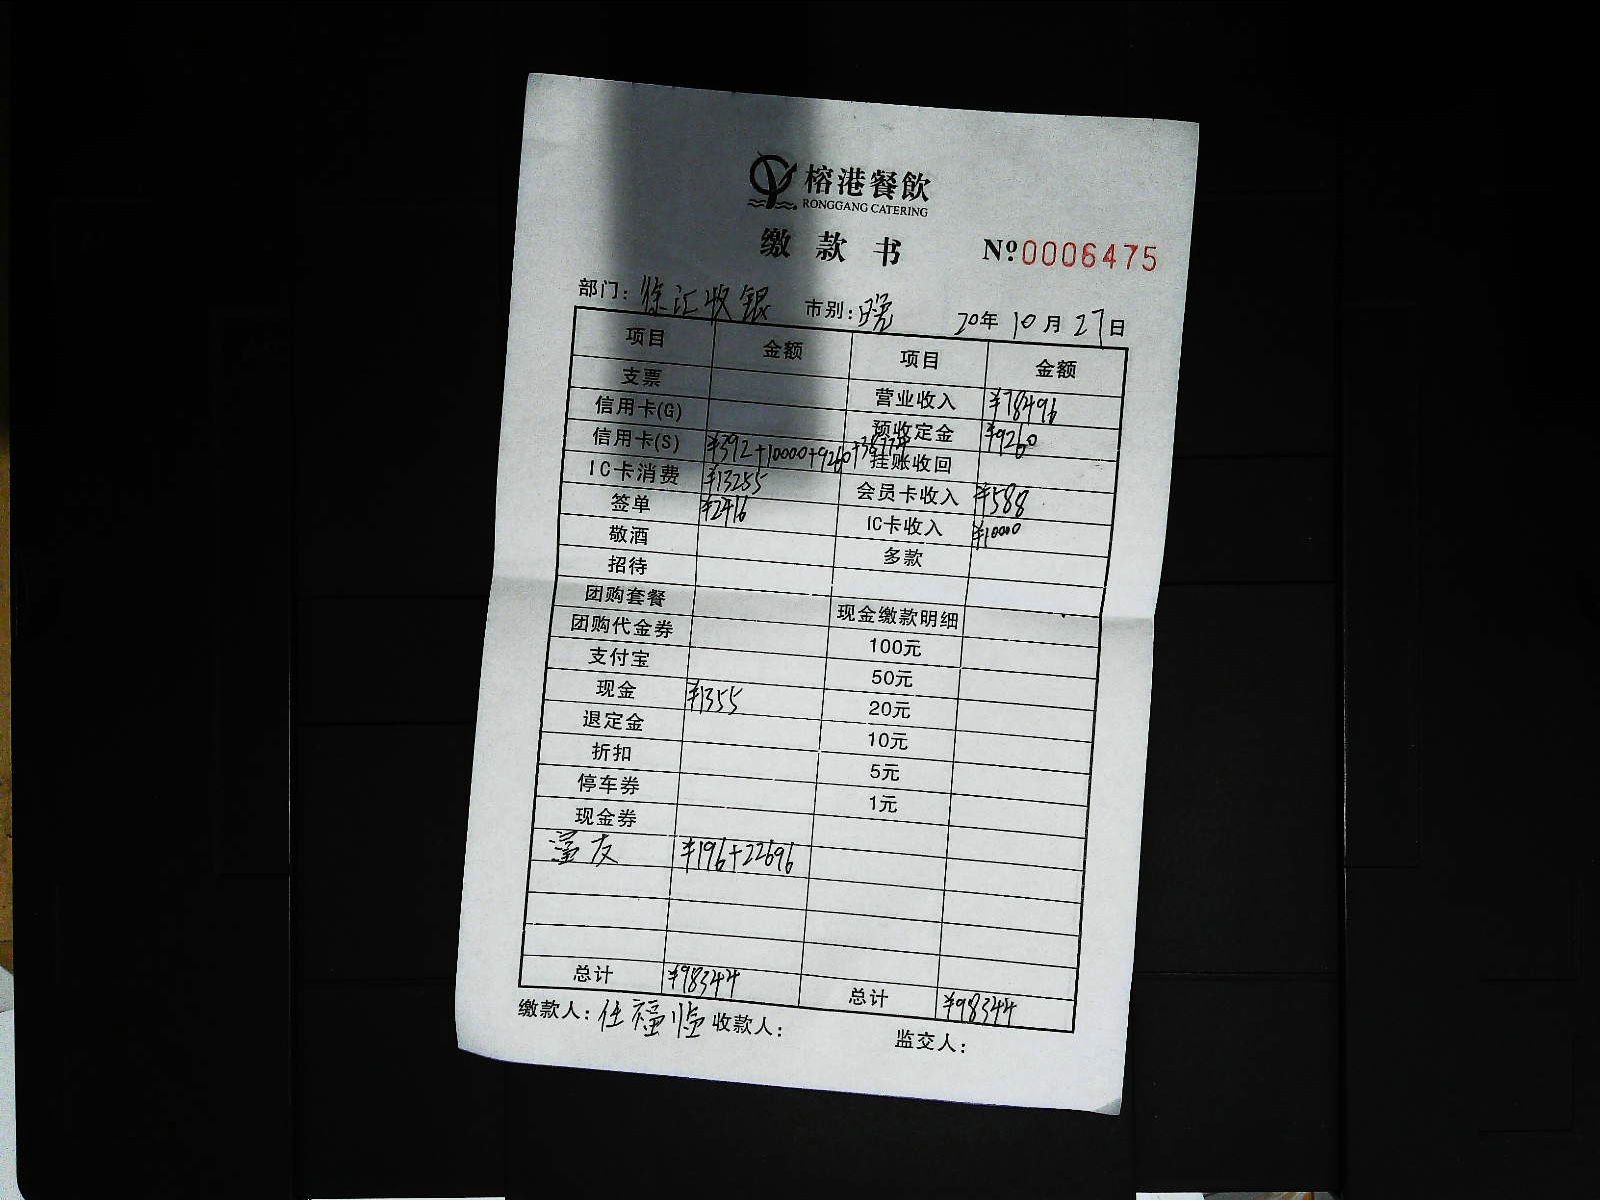 榕港餐飲
RONGGANG CATERING
缴款书 Nº0006475
部门：徐汇收银 市别：晚 20年10月27日
项目 金额 项目 金额
支票 营业收入 ¥78496
信用卡(G) 预收定金 ¥9260
信用卡(S) ¥392+10000+9260+38774 挂账收回
IC卡消费 ¥13255 会员卡收入 ¥588
签单 ¥2416 IC卡收入 ¥10000
敬酒 多款
招待
团购套餐 现金缴款明细
团购代金券 100元
支付宝 50元
现金 ¥1355 20元
退定金 10元
折扣 5元
停车券 1元
现金券
友 ¥196+22696
总计 ¥98344 总计 ¥98344
缴款人：任福临 收款人： 监交人：